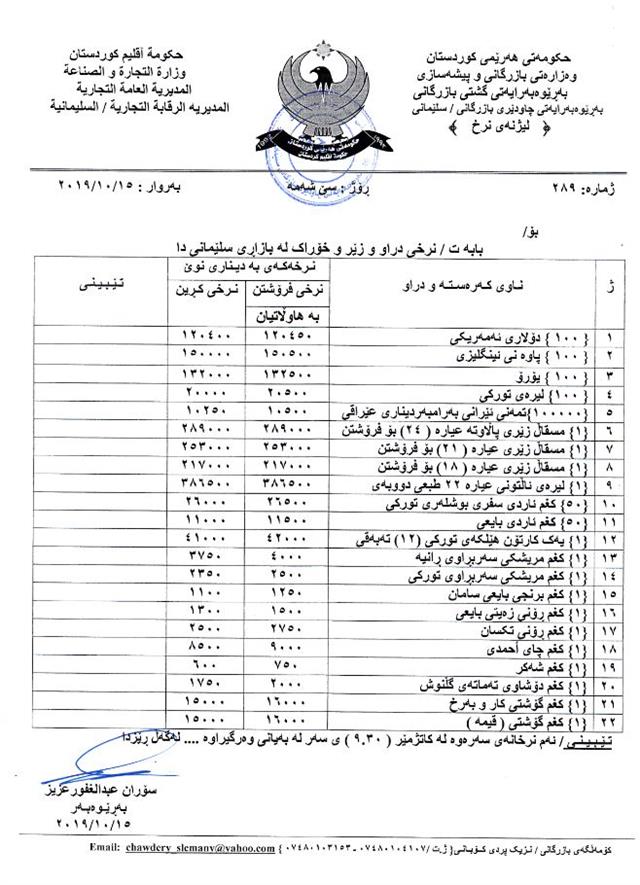 حكومەتی هەرێمی كوردستان
وەزارەتی بازرگانی و پیشەسازی
بەڕێوەبەرایەتی گشتی بازرگانی
بەڕێوەبەرایەتی چاودێری بازرگانی / سلێمانی
﴿ لیژنەی نرخ ﴾
حكومة أقليم كوردستان
وزارة التجارة و الصناعة
المديرية العامة التجارية
المديريه الرقابة التجارية / السليمانية
حكومەتی هەرێمی كوردستان
حكومة اقليم كوردستان
ژمارە: ٢٨٩
ڕۆژ : سێ شەممە
بەروار : ٢٠١٩/١٠/١٥
بۆ/
بابە ت / نرخی دراو و زێر و خۆراك لە بازاڕی سلێمانی دا
ژ ناوی كەرەستە و دراو نرخەكەی بە دیناری نوێ تێبینی
نرخی فرۆشتن بە هاوڵاتیان نرخی كڕین
١ { ١٠٠ } دۆلاری ئەمەریكی ١٢٠٤٥٠ ١٢٠٤٠٠
٢ { ١٠٠ } پاوە نی ئینگلیزی ١٥٠٥٠٠ ١٥٠٠٠٠
٣ { ١٠٠ } یۆرۆ ١٣٢٥٠٠ ١٣٢٠٠٠
٤ { ١٠٠ } لیرەی توركی ٢٠٥٠٠ ٢٠٠٠٠
٥ {١٠٠٠٠٠}تمەنی ئێرانی بەرامبەردیناری عێراقی ١٠٥٠٠ ١٠٢٥٠
٦ {١} مسقاڵ زێری پاڵاوتە عیارە ( ٢٤ ) بۆ فرۆشتن ٢٨٩٠٠٠ ٢٨٩٠٠٠
٧ {١} مسقاڵ زێری عیارە ( ٢١ ) بۆ فرۆشتن ٢٥٣٠٠٠ ٢٥٣٠٠٠
٨ {١} مسقاڵ زێری عیارە ( ١٨ ) بۆ فرۆشتن ٢١٧٠٠٠ ٢١٧٠٠٠
٩ {١} لیرەی ئاڵتونی عیارە ٢٢ طبعی دووبەی ٣٨٦٥٠٠ ٣٨٦٥٠٠
١٠ {٥٠} كغم ئاردی سفری بوشلەری توركی ٢٦٥٠٠ ٢٦٠٠٠
١١ {٥٠} كغم ئاردی بایعی ١١٥٠٠ ١١٠٠٠
١٢ {١} یەك كارتۆن هێلكەی توركی (١٢) تەبەقی ٤٢٠٠٠ ٤١٠٠٠
١٣ {١} كغم مریشكی سەربڕاوی ڕانیە ٤٠٠٠ ٣٧٥٠
١٤ {١} كغم مریشكی سەربڕاوی توركی ٢٥٠٠ ٢٣٥٠
١٥ {١} كغم برنجی بایعی سامان ١٢٥٠ ١١٠٠
١٦ {١} كغم ڕۆنی زەیتی بایعی ١٥٠٠ ١٣٠٠
١٧ {١} كغم ڕۆنی تكسان ٢٧٥٠ ٢٥٠٠
١٨ {١} كغم چای أحمدی ٩٠٠٠ ٨٥٠٠
١٩ {١} كغم شەكر ٧٥٠ ٦٠٠
٢٠ {١} كغم دۆشاوی تەماتەی گڵنوش ٢٠٠٠ ١٧٥٠
٢١ {١} كغم گۆشتی كار و بەرخ ١٦٠٠٠ ١٥٠٠٠
٢٢ {١} كغم گۆشتی ( قیمە ) ١٦٠٠٠ ١٥٠٠٠
تێبینی / ئەم نرخانەی سەرەوە لە كاتژمێر ( ٩.٣٠ ) ی سەر لە بەیانی وەرگیراوە .... لەگەل ڕێزدا
سۆران عبدالغفورعزیز
بەڕێوەبەر
٢٠١٩/١٠/١٥
كۆمەڵگەی بازرگانی / نزیك پردی كۆبانی{ ژ.ت /٠٧٤٨٠١٠٤١٠٧ - ٠٧٤٨٠١٠٣١٥٣ } Email: chawdery_slemany@yahoo.com